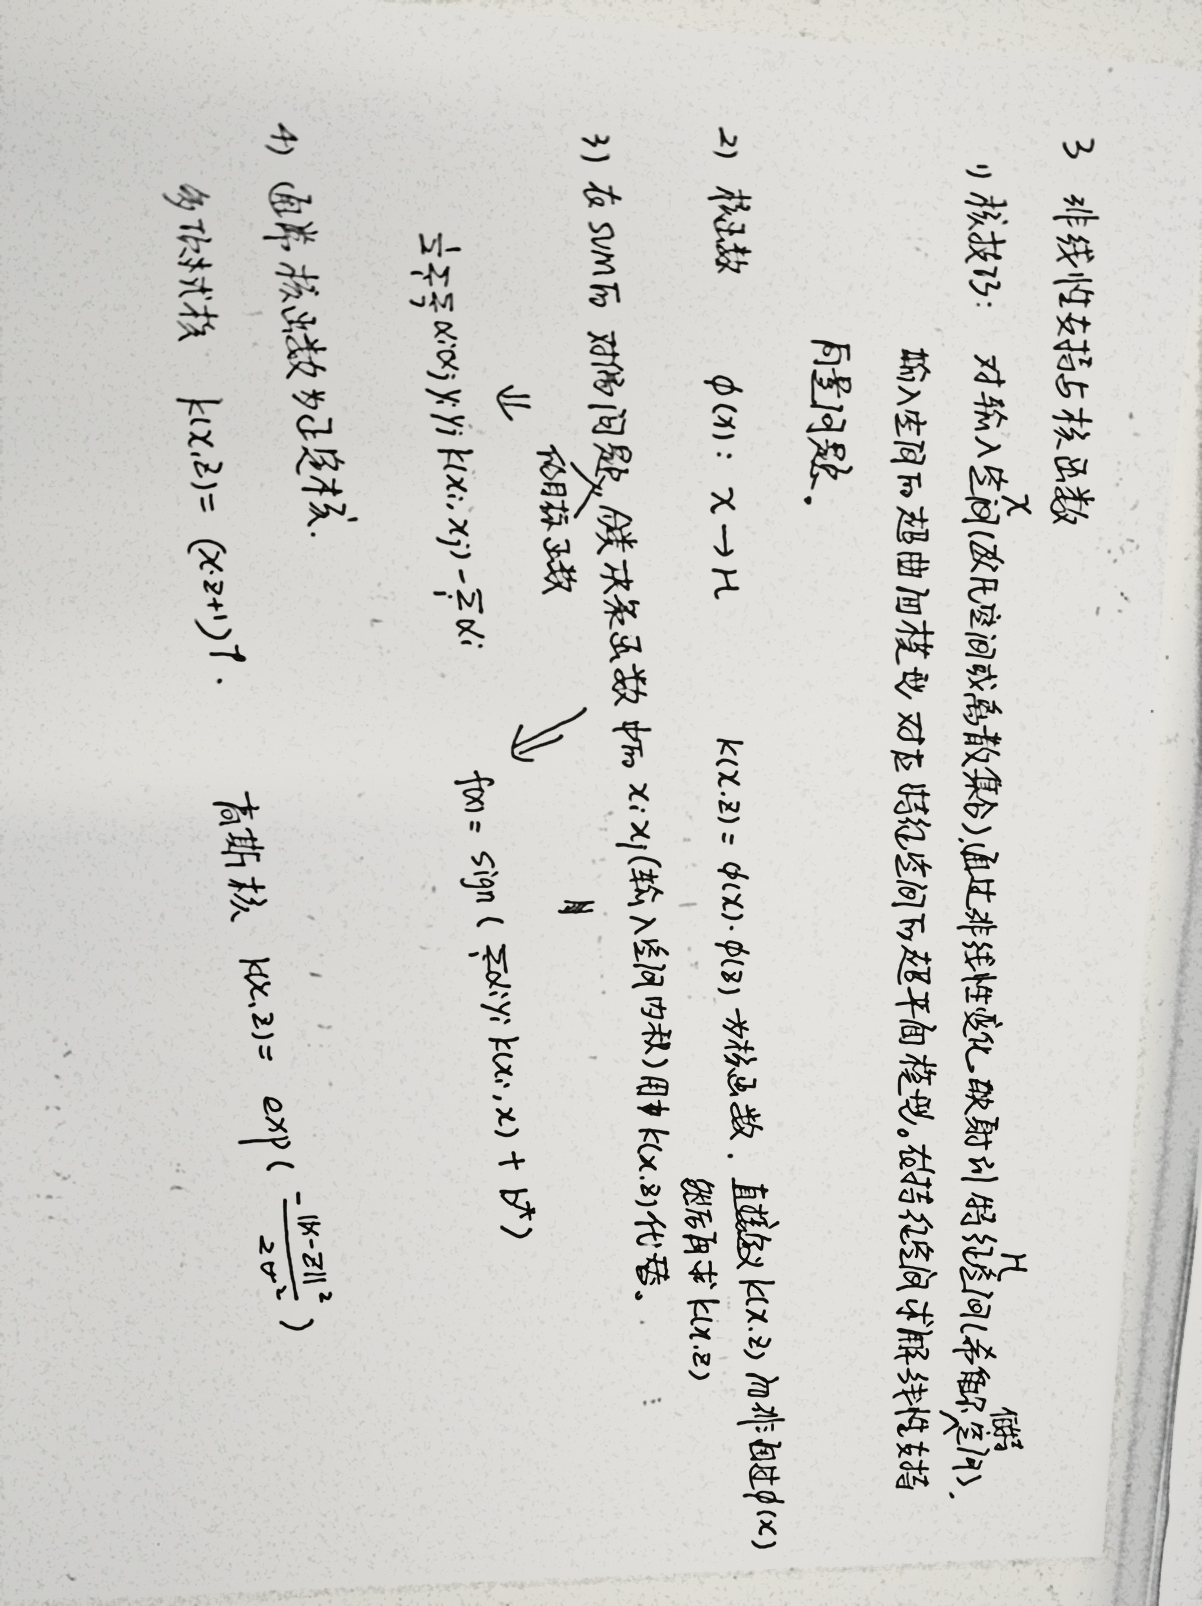 3 非线性支持与核函数
1) 核技巧: 对输入空间χ(欧氏空间或离散集合),通过非线性变化,映射到特征空间H(希尔伯特空间).
输入空间的超曲面模型对应特征空间的超平面模型。在特征空间求解线性支持
向量问题。
2) 核函数 φ(x): χ→H K(x.z)=φ(x)·φ(z) 为核函数. 直接定义K(x.z)而非通过φ(x)
然后再求K(x.z)
3) 在SVM的对偶问题, 决策函数中的 xi xj (输入空间内积)用K(x.z)代替。
⇓ 的目标函数 ⇓
½ΣiΣj αiαj yi yj K(xi,xj) - Σi αi f(x) = sign(Σi αi yi K(xi,x) + b*)
4) 通常核函数为正定核.
多项式核 K(x,z)= (x·z+1)^p. 高斯核 K(x,z)= exp( -||x-z||² / 2σ² )